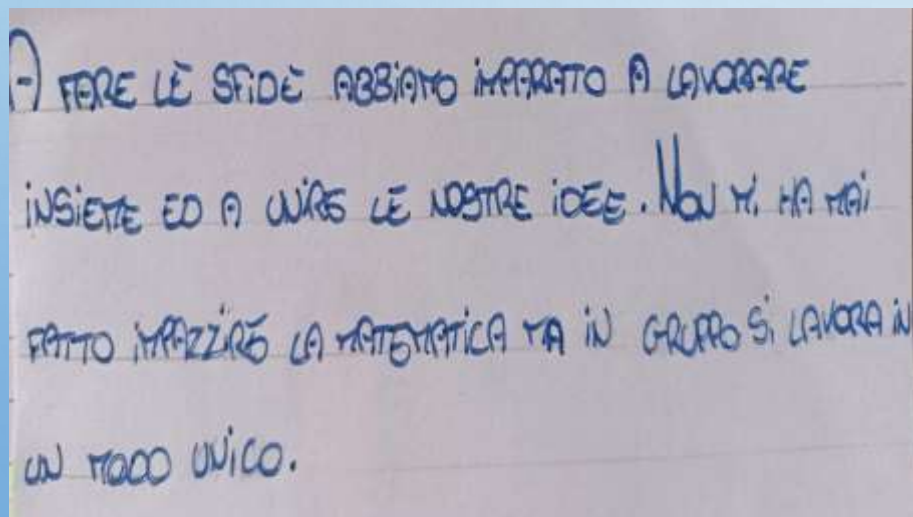 A FARE LE SFIDE ABBIAMO IMPARATO A LAVORARE
INSIEME ED A UNIRE LE NOSTRE IDEE. NON MI HA MAI
FATTO IMPAZZIRE LA MATEMATICA MA IN GRUPPO SI LAVORA IN
UN MODO UNICO.